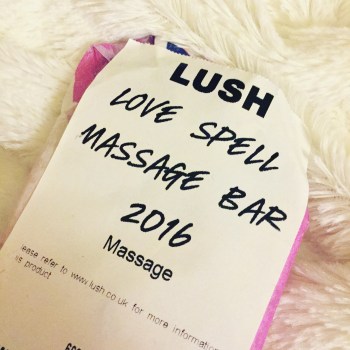 LUSH
LOVE SPELL
MASSAGE BAR
2016
Massage
Please refer to www.lush.co.uk for more information
is product